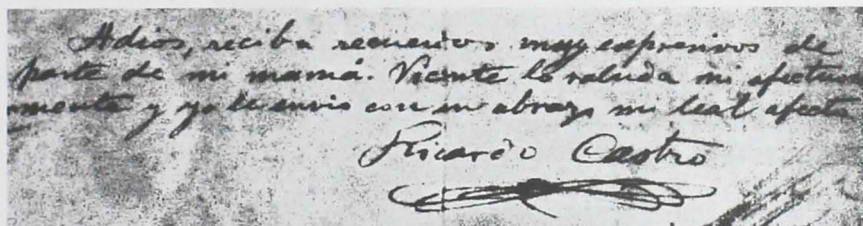 Adios, reciba recuerdos muy expresivos de
parte de mi mamá. Vicente lo saluda mi afectuosa
mente y yo le envio con un abrazo mi leal afecto
Ricardo Castro